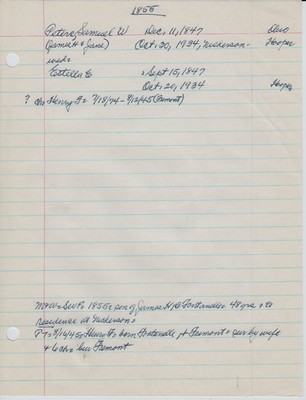 1855
Peters, Samuel W Dec, 11, 1847 Ohio
(James H & Jane) Oct, 20, 1934, Nickerson- Hooper
wed=
Estella E = Sept 15, 1847
Oct, 20, 1934 Hooper
? ch= Henry F= 7/18/74- 9/12/45 (Fremont)
M&W= SWP= 1855= son of James H, Fontanelle 48 yrs = to
residence at Nickerson=
F T= 9/16/45= Henry F= born Fontanelle, pt Fremont = sur by wife
+ 6 ch= bur Fremont